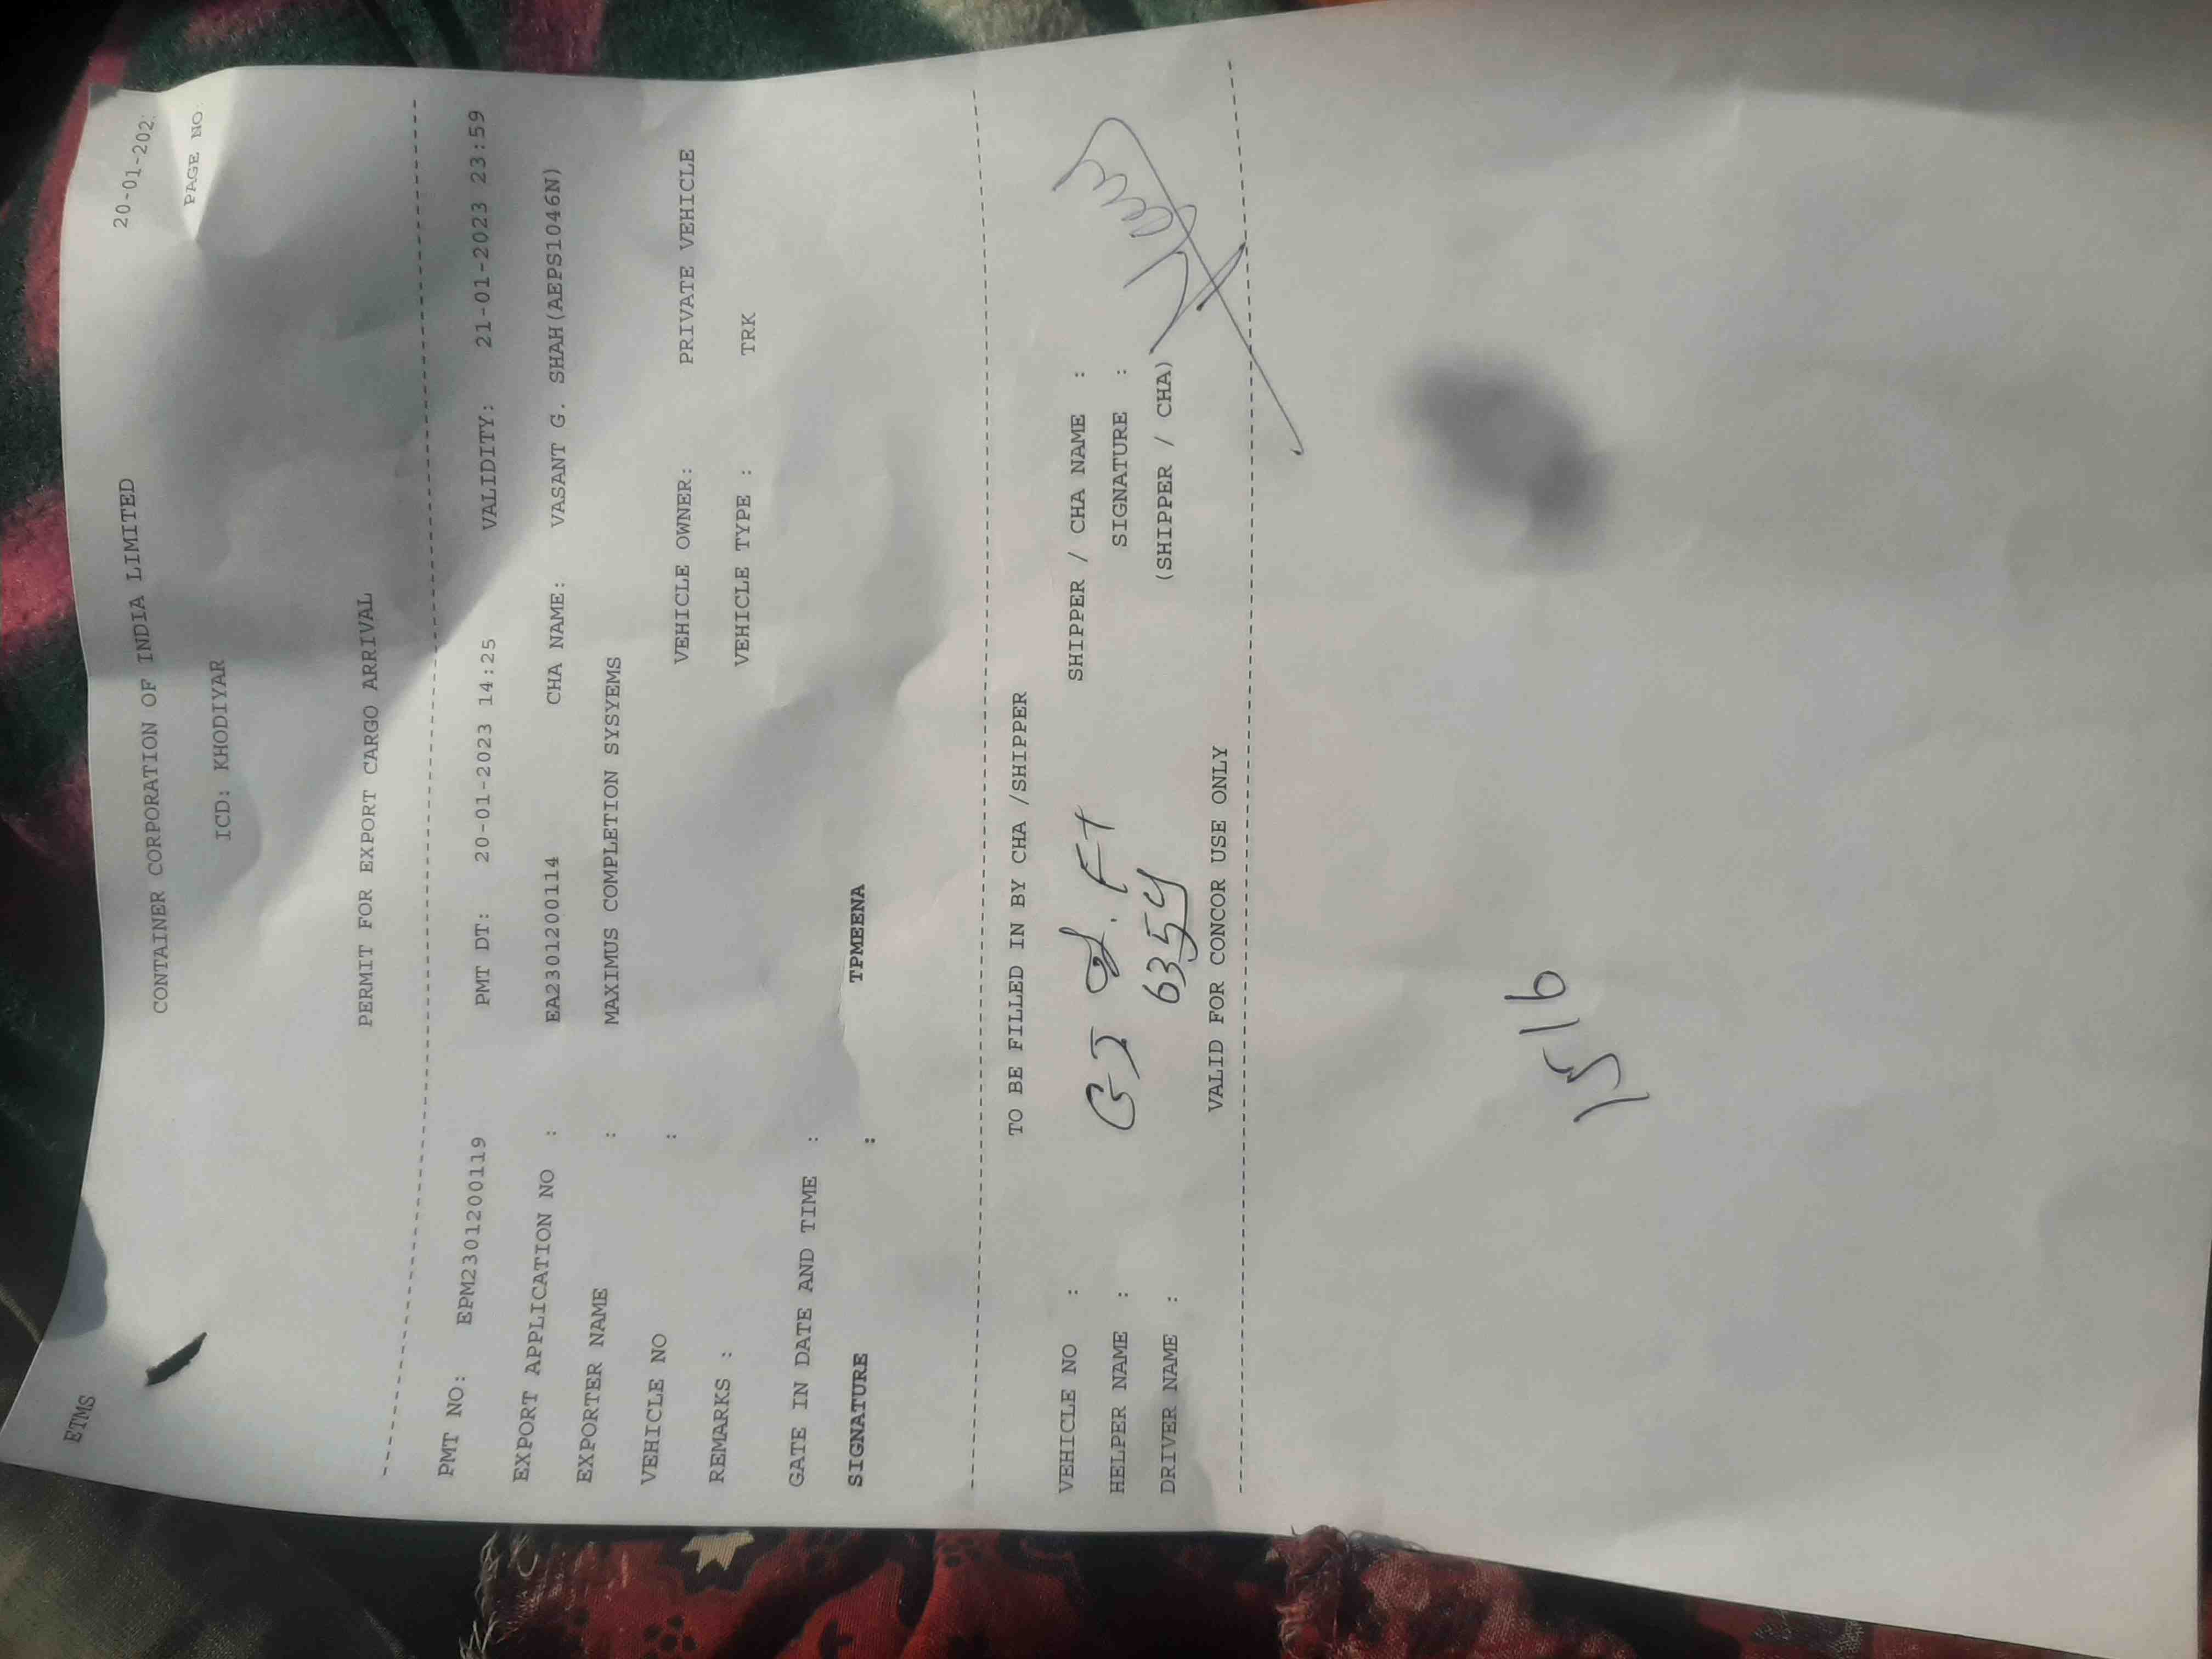 ETMS
CONTAINER CORPORATION OF INDIA LIMITED 20-01-202
PAGE NO
ICD: KHODIYAR
PERMIT FOR EXPORT CARGO ARRIVAL
PMT NO: EPM2301200119 PMT DT: 20-01-2023 14:25 VALIDITY: 21-01-2023 23:59
EXPORT APPLICATION NO : EA2301200114 CHA NAME: VASANT G. SHAH(AEPS1046N)
EXPORTER NAME : MAXIMUS COMPLETION SYSYEMS
VEHICLE NO : VEHICLE OWNER: PRIVATE VEHICLE
REMARKS : VEHICLE TYPE : TRK
GATE IN DATE AND TIME :
SIGNATURE : TPMEENA
TO BE FILLED IN BY CHA /SHIPPER
VEHICLE NO : SHIPPER / CHA NAME :
HELPER NAME : SIGNATURE :
DRIVER NAME : 6354 (SHIPPER / CHA)
VALID FOR CONCOR USE ONLY
1516